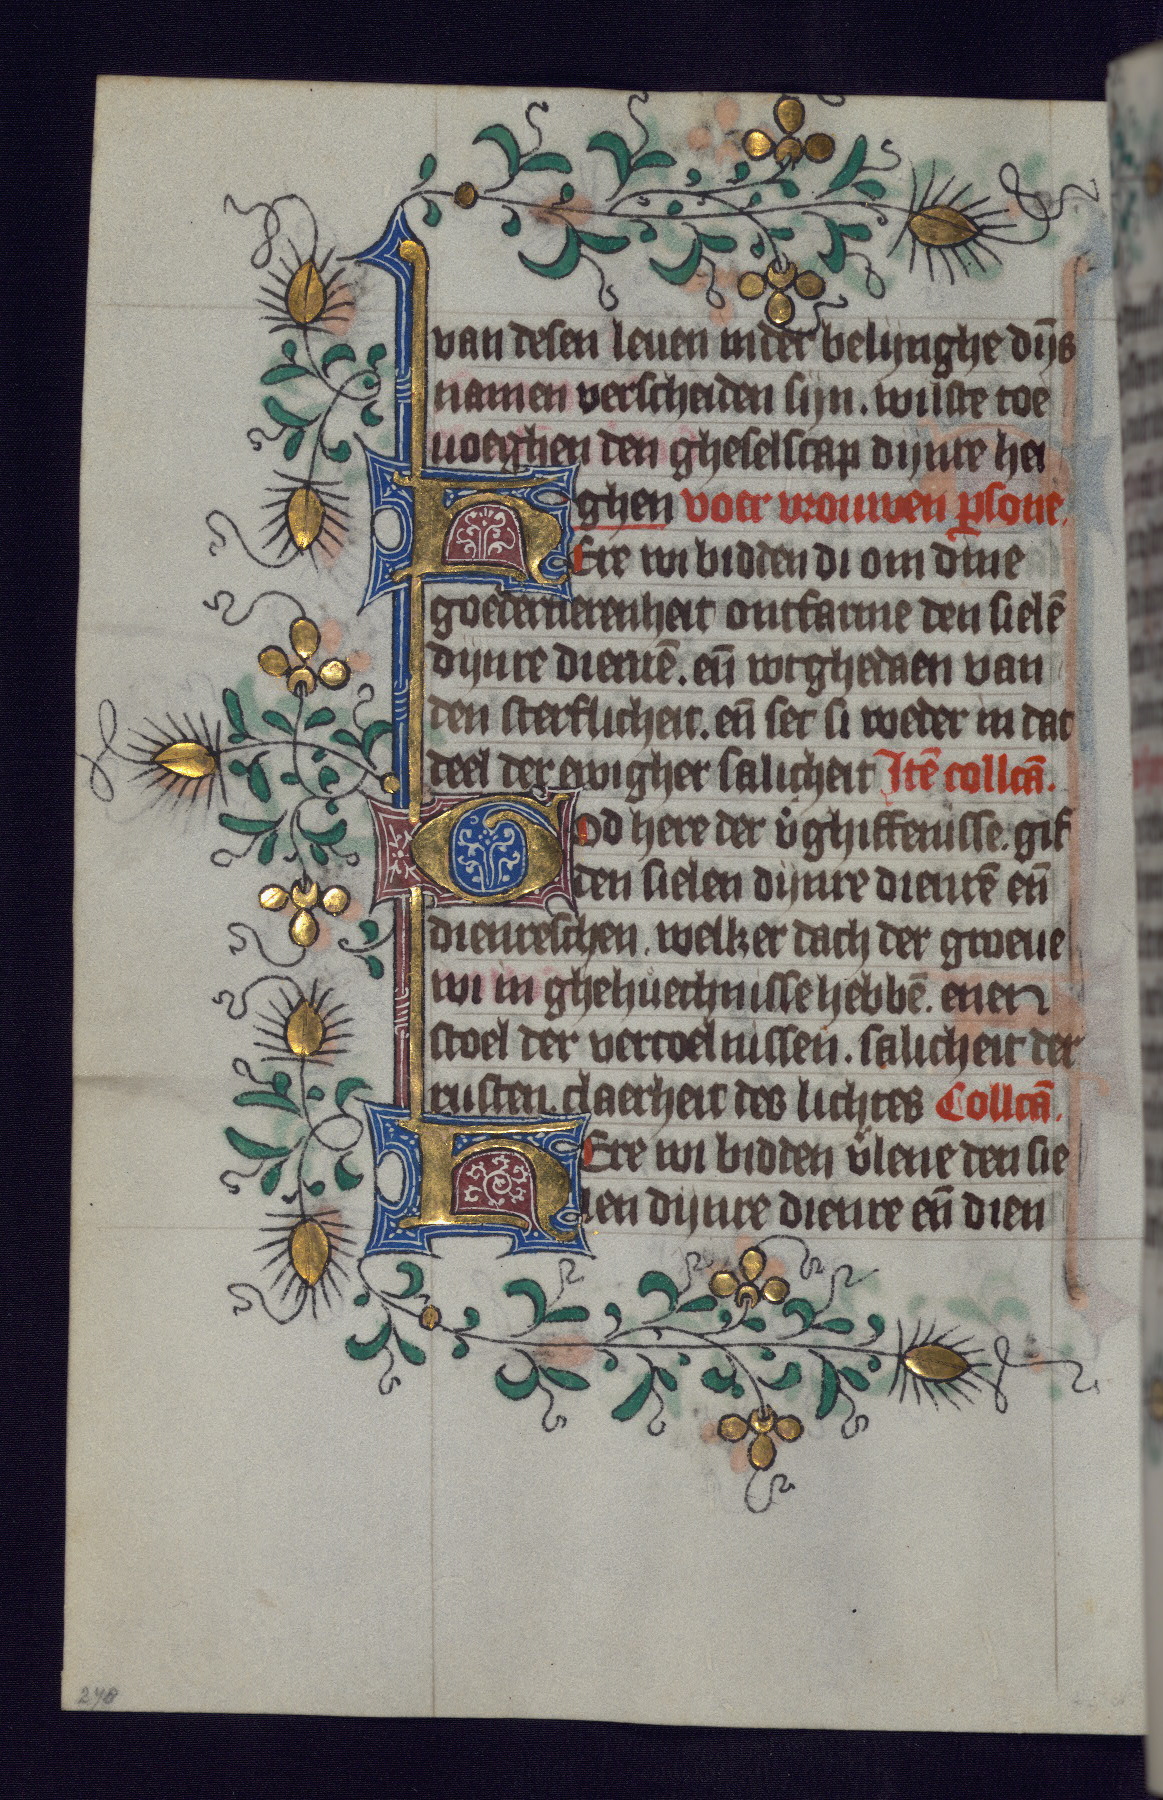 van desen leuen inder belijnghe dijs
namen verscheiden sijn. wilste toe
uoeghen den gheselscap dijnre hei
ghen voer vrouwen ꝑsone.
HEre wi bidden di om dine
goedertierenheit ontfarme den sielē
dijnre dienrē. eñ wtghedaen van
den sterflicheit. eñ set si weder in dat
deel der ewigher salicheit Jtē collcā.
God here der v̉ghiffenisse. gif
den sielen dijnre dienrē eñ
dienreschen. welker dach der groeue
wi in ghehuechnisse hebbē. enen
stoel der vercoelnissen. salicheit der
rusten. claerheit des lichtes Collcā.
HEre wi bidden v̉lene den sie
len dijnre dienre eñ dien
270